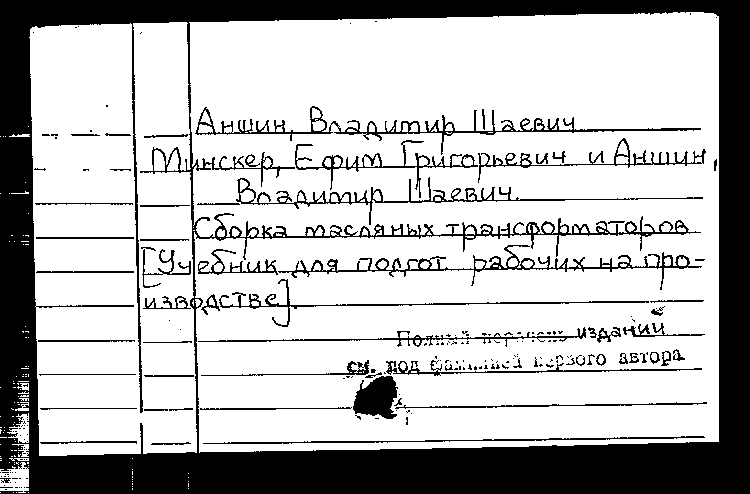 Аншин, Владимир Шаевич
Минскер, Ефим Григорьевич и Аншин,
Владимир Шаевич.
Сборка масляных трансформаторов
[Учебник для подгот. рабочих на про-
изводстве].
Полный перечень изданий
см. под фамилией первого автора